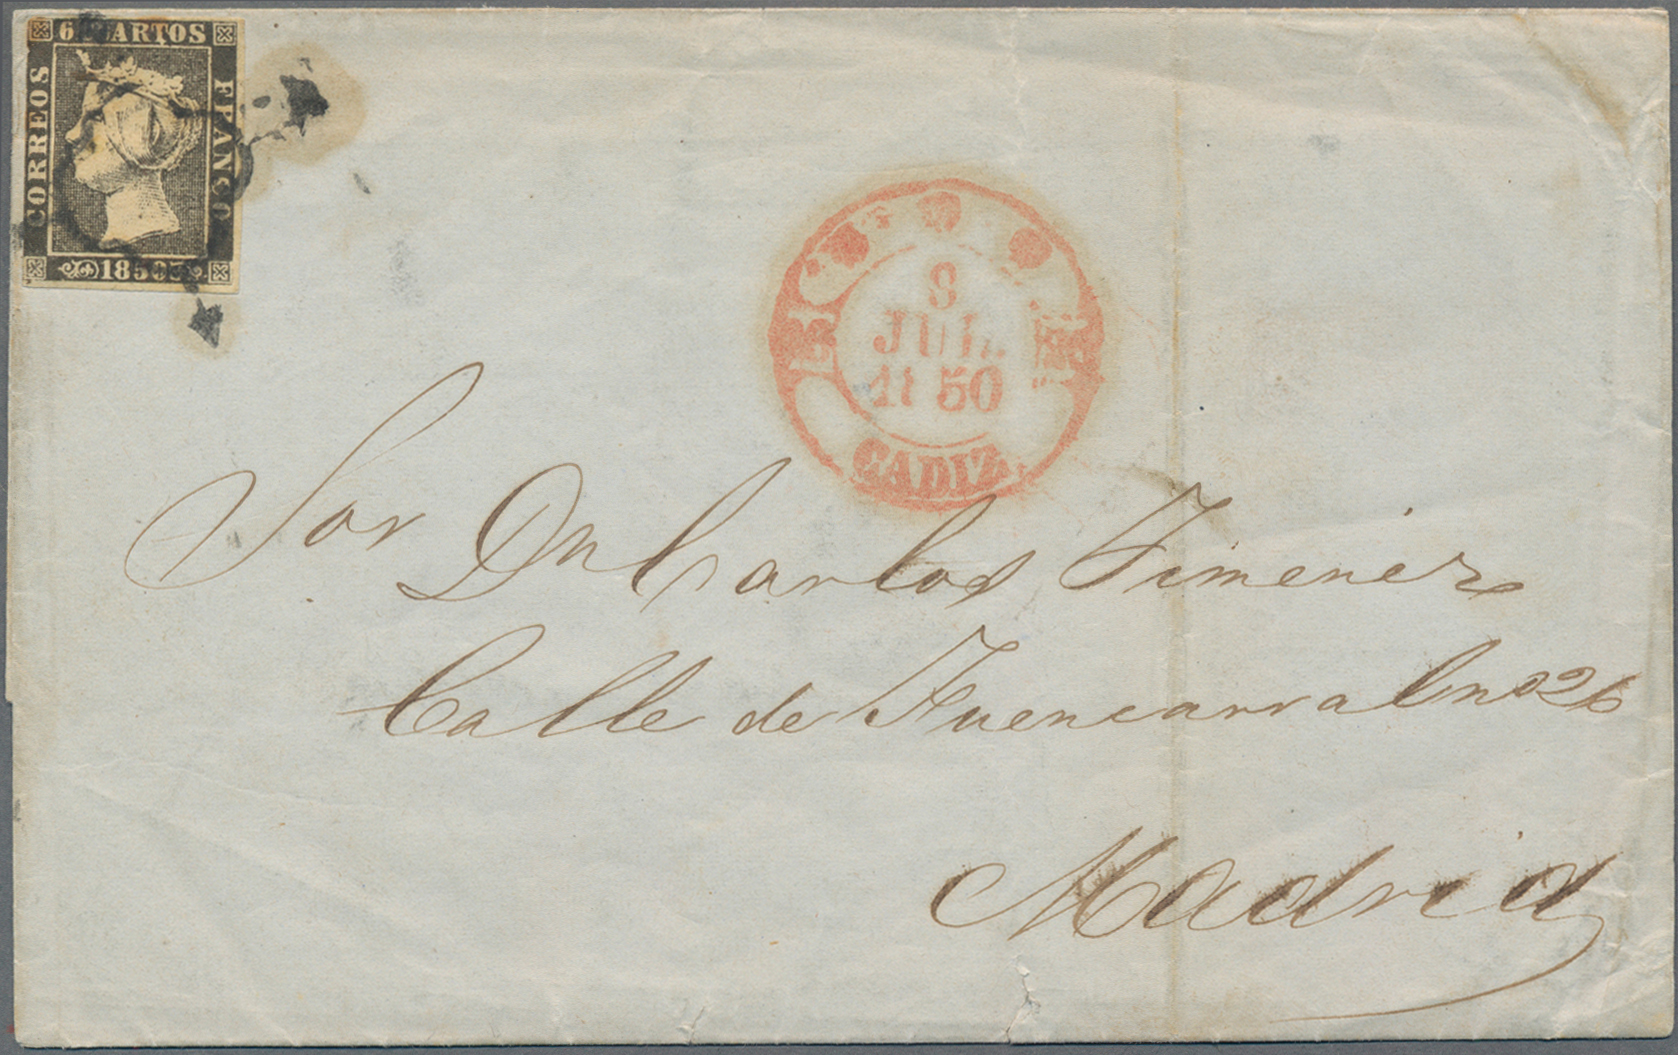 6 CUARTOS
CORREOS
FRANCO
1850
8
JUL.
1850
CADIZ
Sor Dn Carlos Jimenez
Calle de Fuencarral no 26
Madrid